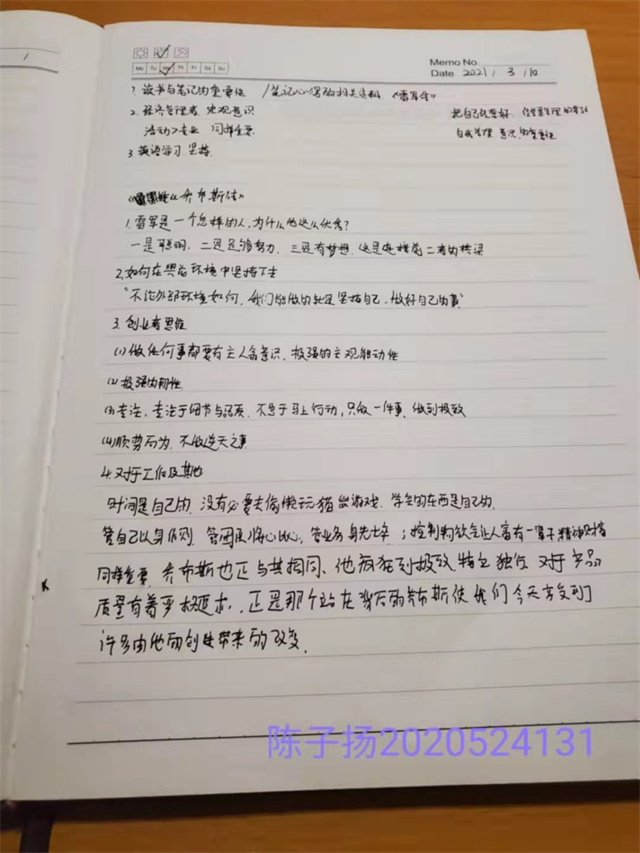 Memo No
Mo Tu We Th Fr Sa Su
Date 2021 / 3 / 10
1. 读书与笔记的重要性 /笔记心得的相关资料 《雷军传》
2. 经济管理者 宏观意识 把自己管理好
活动>专业 同样重要 自我管理 意识的重要性
3. 英语学习 坚持
《乔布斯传》
1. 雷军是一个怎样的人,为什么他这么优秀?
一是聪明, 二是足够努力, 三是有梦想, 这是连接前二者的桥梁
2. 如何在恶劣环境中坚持下去
"不论外部环境如何, 我们能做的就是坚持自己, 做好自己的事"
3. 创业者思维
(1) 做任何事都要有主人翁意识, 极强的主观能动性
(2) 极强的韧性
(3) 专注, 专注于细节与品质, 不急于马上行动, 只做一件事, 做到极致
(4) 顺势而为, 不做逆天之事
4. 对于工作及其他
时间是自己的, 没有必要去偷懒玩猫腻游戏, 学会的东西是自己的.
管自己以身作则, 管团队将心比心, 管业务身先士卒 ; 控制物欲会让人富有一辈子 精神财富
同样重要. 乔布斯也正与其相同、他疯狂到极致,特立独行 对于产品
质量有着严格追求, 正是那个站在背后的乔布斯使我们今天享受到了
许多由他的创造带来的改变.
陈子扬2020524131